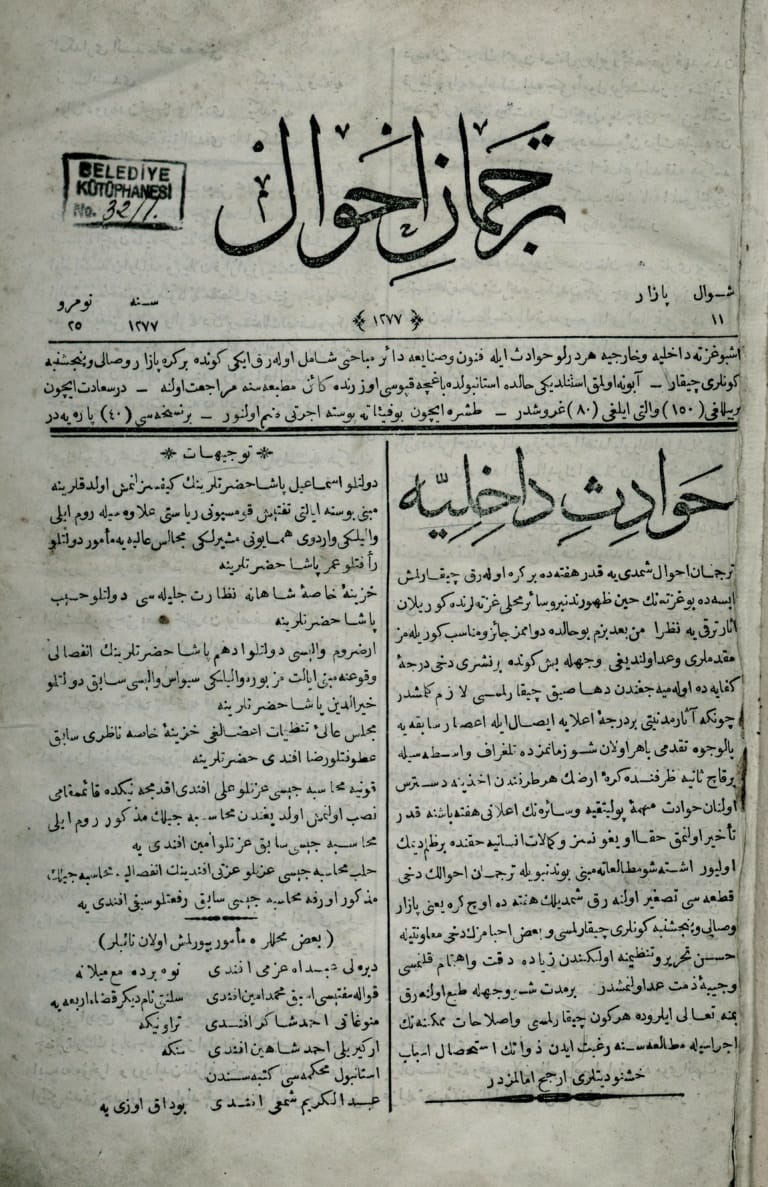 BELEDİYE
KÜTÜPHANESİ
No. 32/1.
ترجمان احوال
شوال پازار سنه نومرو
١١ ﴿١٢٧٧﴾ ١٢٧٧ ٢٥
اشبو غزته داخلیه و خارجیه هر درلو حوادث ایله فنون و صنایعه دائر مباحثی شامل اوله رق ایکی کونده بر کره پازار و صالی و پنجشنبه
کونلری چیقار – آبونه اولمق استنلدیکی حالده استانبولده باغچه قپوسی اوزرنده کائن مطبعه سنه مراجعت اولنه – درسعادت ایچون
بر ییللغی (١٥٠) والتی ایلغی (٨٠) غروشدر – طشره ایچون بوفیئاته پوسته اجرتی ضم اولنور – بر نسخه سی (٤٠) پاره یه در
حوادث داخلیه
ترجمان احوال شمدی یه قدر هفته ده بر کره اوله رق چیقارلمش
ایسه ده بو غزته نك حین ظهورندنبرو سائر محلی غزته لرنده کوریلان
اثار ترقی یه نظرا من بعد بزم بو حالده دوامز جائز و مناسب کورلیه مز
مقدملری وعد اولندیغی وجهله بش کونده بر نشری دخی درجۀ
کفایه ده اوله میه جغندن دها صیق چیقارلمسی لازم کلمشدر
چونکه آثار مدنیتی بر درجۀ اعلایه ایصال ایله اعصار سابقه یه
بالوجوه تقدمی باهر اولان شو زمانمزده تلغراف واسطه سیله
بر قاچ ثانیه ظرفنده کرۀ ارضك هر طرفندن اخذینه دسترس
اولنان حوادث مهمۀ پولیتقیه و سائره نك اعلانی هفته باشنه قدر
تأخیر اولنمق حقا اویغونسز و کمالات انسانیه حقنده بر ظلم دیمك
اولیور اشته شو مطالعاته مبنی بوندنبویله ترجمان احوالك دخی
قطعه سی تصغیر اولنه رق شمدیلك هفته ده اوچ کره یعنی پازار
وصالی و پنجشنبه کونلری چیقارلمسی و بعض احبامزك دخی معاونتیله
حسن تحریر و تنظیمنه اولکندن زیاده دقت واهتمام قلنمسی
وجیبۀ ذمت عد اولنمشدر بر مدت شو وجهله طبع اولنه رق
بمنه تعالی ایلروده هرکون چیقارلمسی واصلاحات ممکنه نك
اجراسیله مطالعه سنه رغبت ایدن ذواتك استحصال اسباب
خشنودیتلری ارجح امالمزدر
* توجیهات *
دولتلو اسماعیل پاشا حضرتلرینك کیفسزلنمش اولدقلرینه
مبنی بوسنه ایالتی تفتیش قومسیونی ریاستی علاوه سیله روم ایلی
والیلکی واردوی همایونی مشیرلکی مجالس عالیه یه مأمور دولتلو
رأفتلو عمر پاشا حضرتلرینه
خزینۀ خاصۀ شاهانه نظارت جلیله سی دولتلو حسیب
پاشا حضرتلرینه
ارضروم والیسی دولتلو ادهم پاشا حضرتلرینك انفصالی
وقوعنه مبنی ایالت مزبوره والیلکی سیواس والیسی سابق دولتلو
خیرالدین پاشا حضرتلرینه
مجلس عالئ تنظیمات اعضالغی خزینۀ خاصه ناظری سابق
عطوفتلو رضا افندی حضرتلرینه
قونیه محاسبه جیسی عزتلو علی افندی اقدمجه نیکده قائممقامی
نصب اولنمش اولدیغندن محاسبه جیلك مذکور روم ایلی
محاسبه جیسی سابق عزتلو امین افندی یه
حلب محاسبه جیسی عزتلو عزتی افندینك انفصالیله محاسبه جیلك
مذکور اورفه محاسبه جیسی سابق رفعتلو سیفی افندی یه
(بعض محللره مأمور بیورلمش اولان نائبلر)
دیره لی عبدالله عزمی افندی نوه برده مع میلانه
قواله مفتیسی اسبق محمد امین افندی سلفتی نام دیکر قضاء اربعه یه
منوغاتی احمد شاکر افندی تراونیکه
ارکیریلی احمد شاهین افندی متکه
استانبول محکمه سی کتبه سندن
عبد الکریم شمعی افندی بوداق اوزی یه